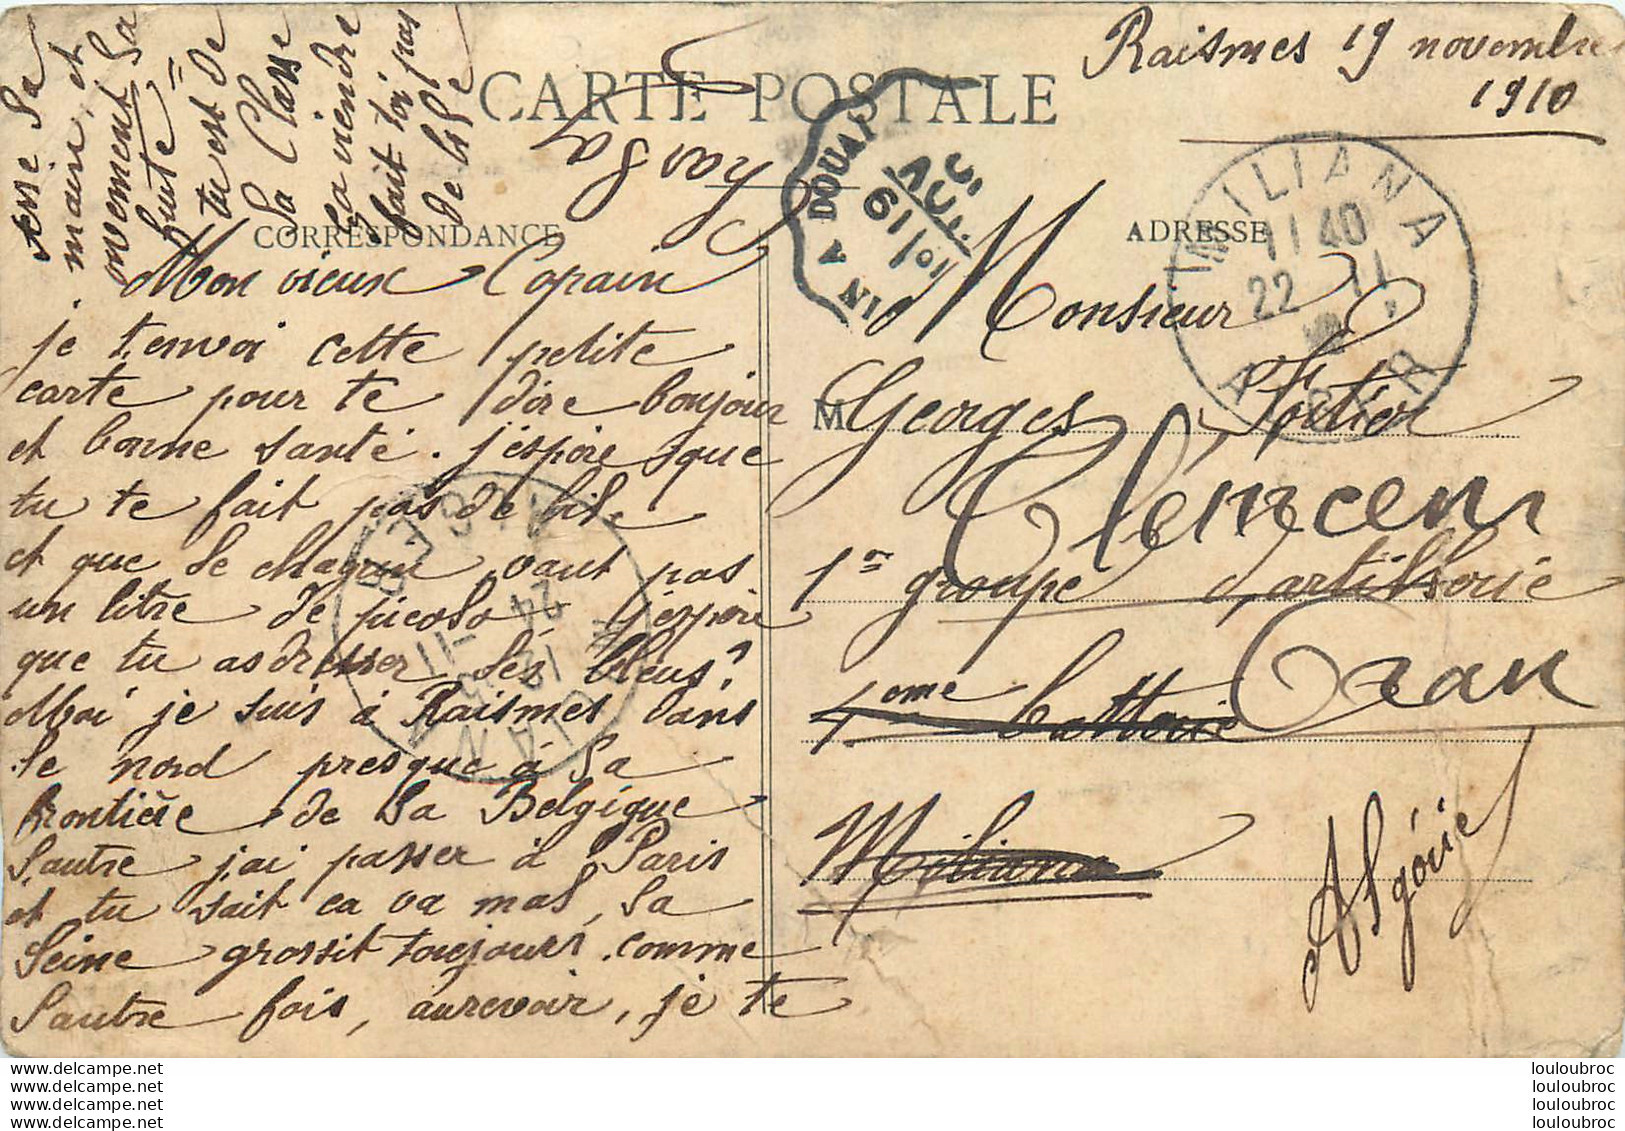 CARTE POSTALE
Raismes 19 novembre
1910
CORRESPONDANCE
ADRESSE
Mon vieux Copain
je t'envoi cette petite
carte pour te dire bonjour
et bonne santé. j'éspère que
tu te fait pas de bile
et que le Magnin vaut pas
un litre de picolo j'éspère
que tu as dresser les bleus?
Moi je suis à Raismes dans
le nord presque à la
frontière de la Belgique
l'autre j'ai passer à Paris
et tu sait ca va mal, la
Seine grossit toujours comme
l'autre fois, aurevoir, je te
serre la
main, et
vivement la
fuite
tu est de
la Classe
la viendre
fait toi pas
de bile
Monsieur
M Georges Fortier
Clemcem
1er groupe d'artillerie
4eme batterie Oran
Miliana
Algérie
MILIANA
11 40
22 11
ALGER
MILIANA
ALGER
24 - 11
DOUAI A
19
louloubroc
louloubroc
louloubroc
louloubroc
www.delcampe.net
www.delcampe.net
www.delcampe.net
www.delcampe.net